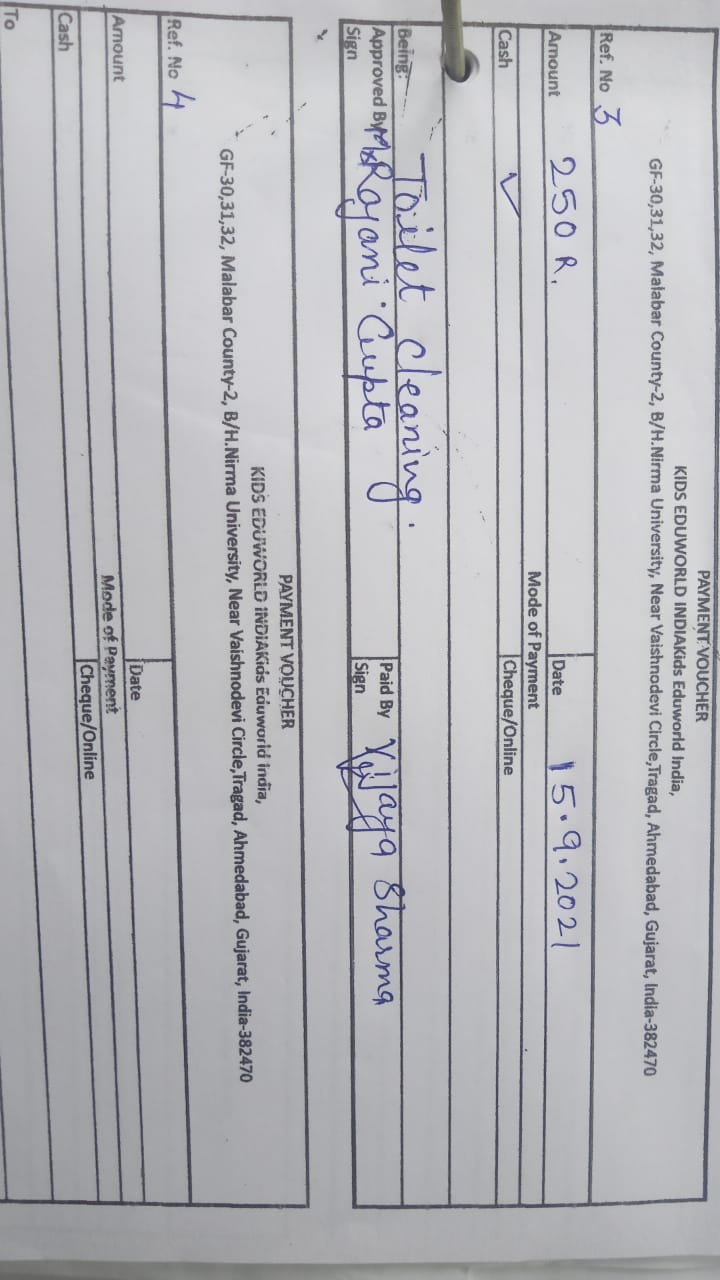 PAYMENT VOUCHER
KIDS EDUWORLD INDIAKids Eduworld India,
GF-30,31,32, Malabar County-2, B/H.Nirma University, Near Vaishnodevi Circle,Tragad, Ahmedabad, Gujarat, India-382470
Ref. No 3
Amount 250 R. Date 15.9.2021
Mode of Payment
Cash ✓ Cheque/Online
Being: Toilet cleaning.
Approved By Rajani Gupta Paid By Vijaya Sharma
Sign Sign
PAYMENT VOUCHER
KIDS EDUWORLD INDIAKids Eduworld India,
GF-30,31,32, Malabar County-2, B/H.Nirma University, Near Vaishnodevi Circle,Tragad, Ahmedabad, Gujarat, India-382470
Ref. No 4
Amount Date
Mode of Payment
Cash Cheque/Online
To